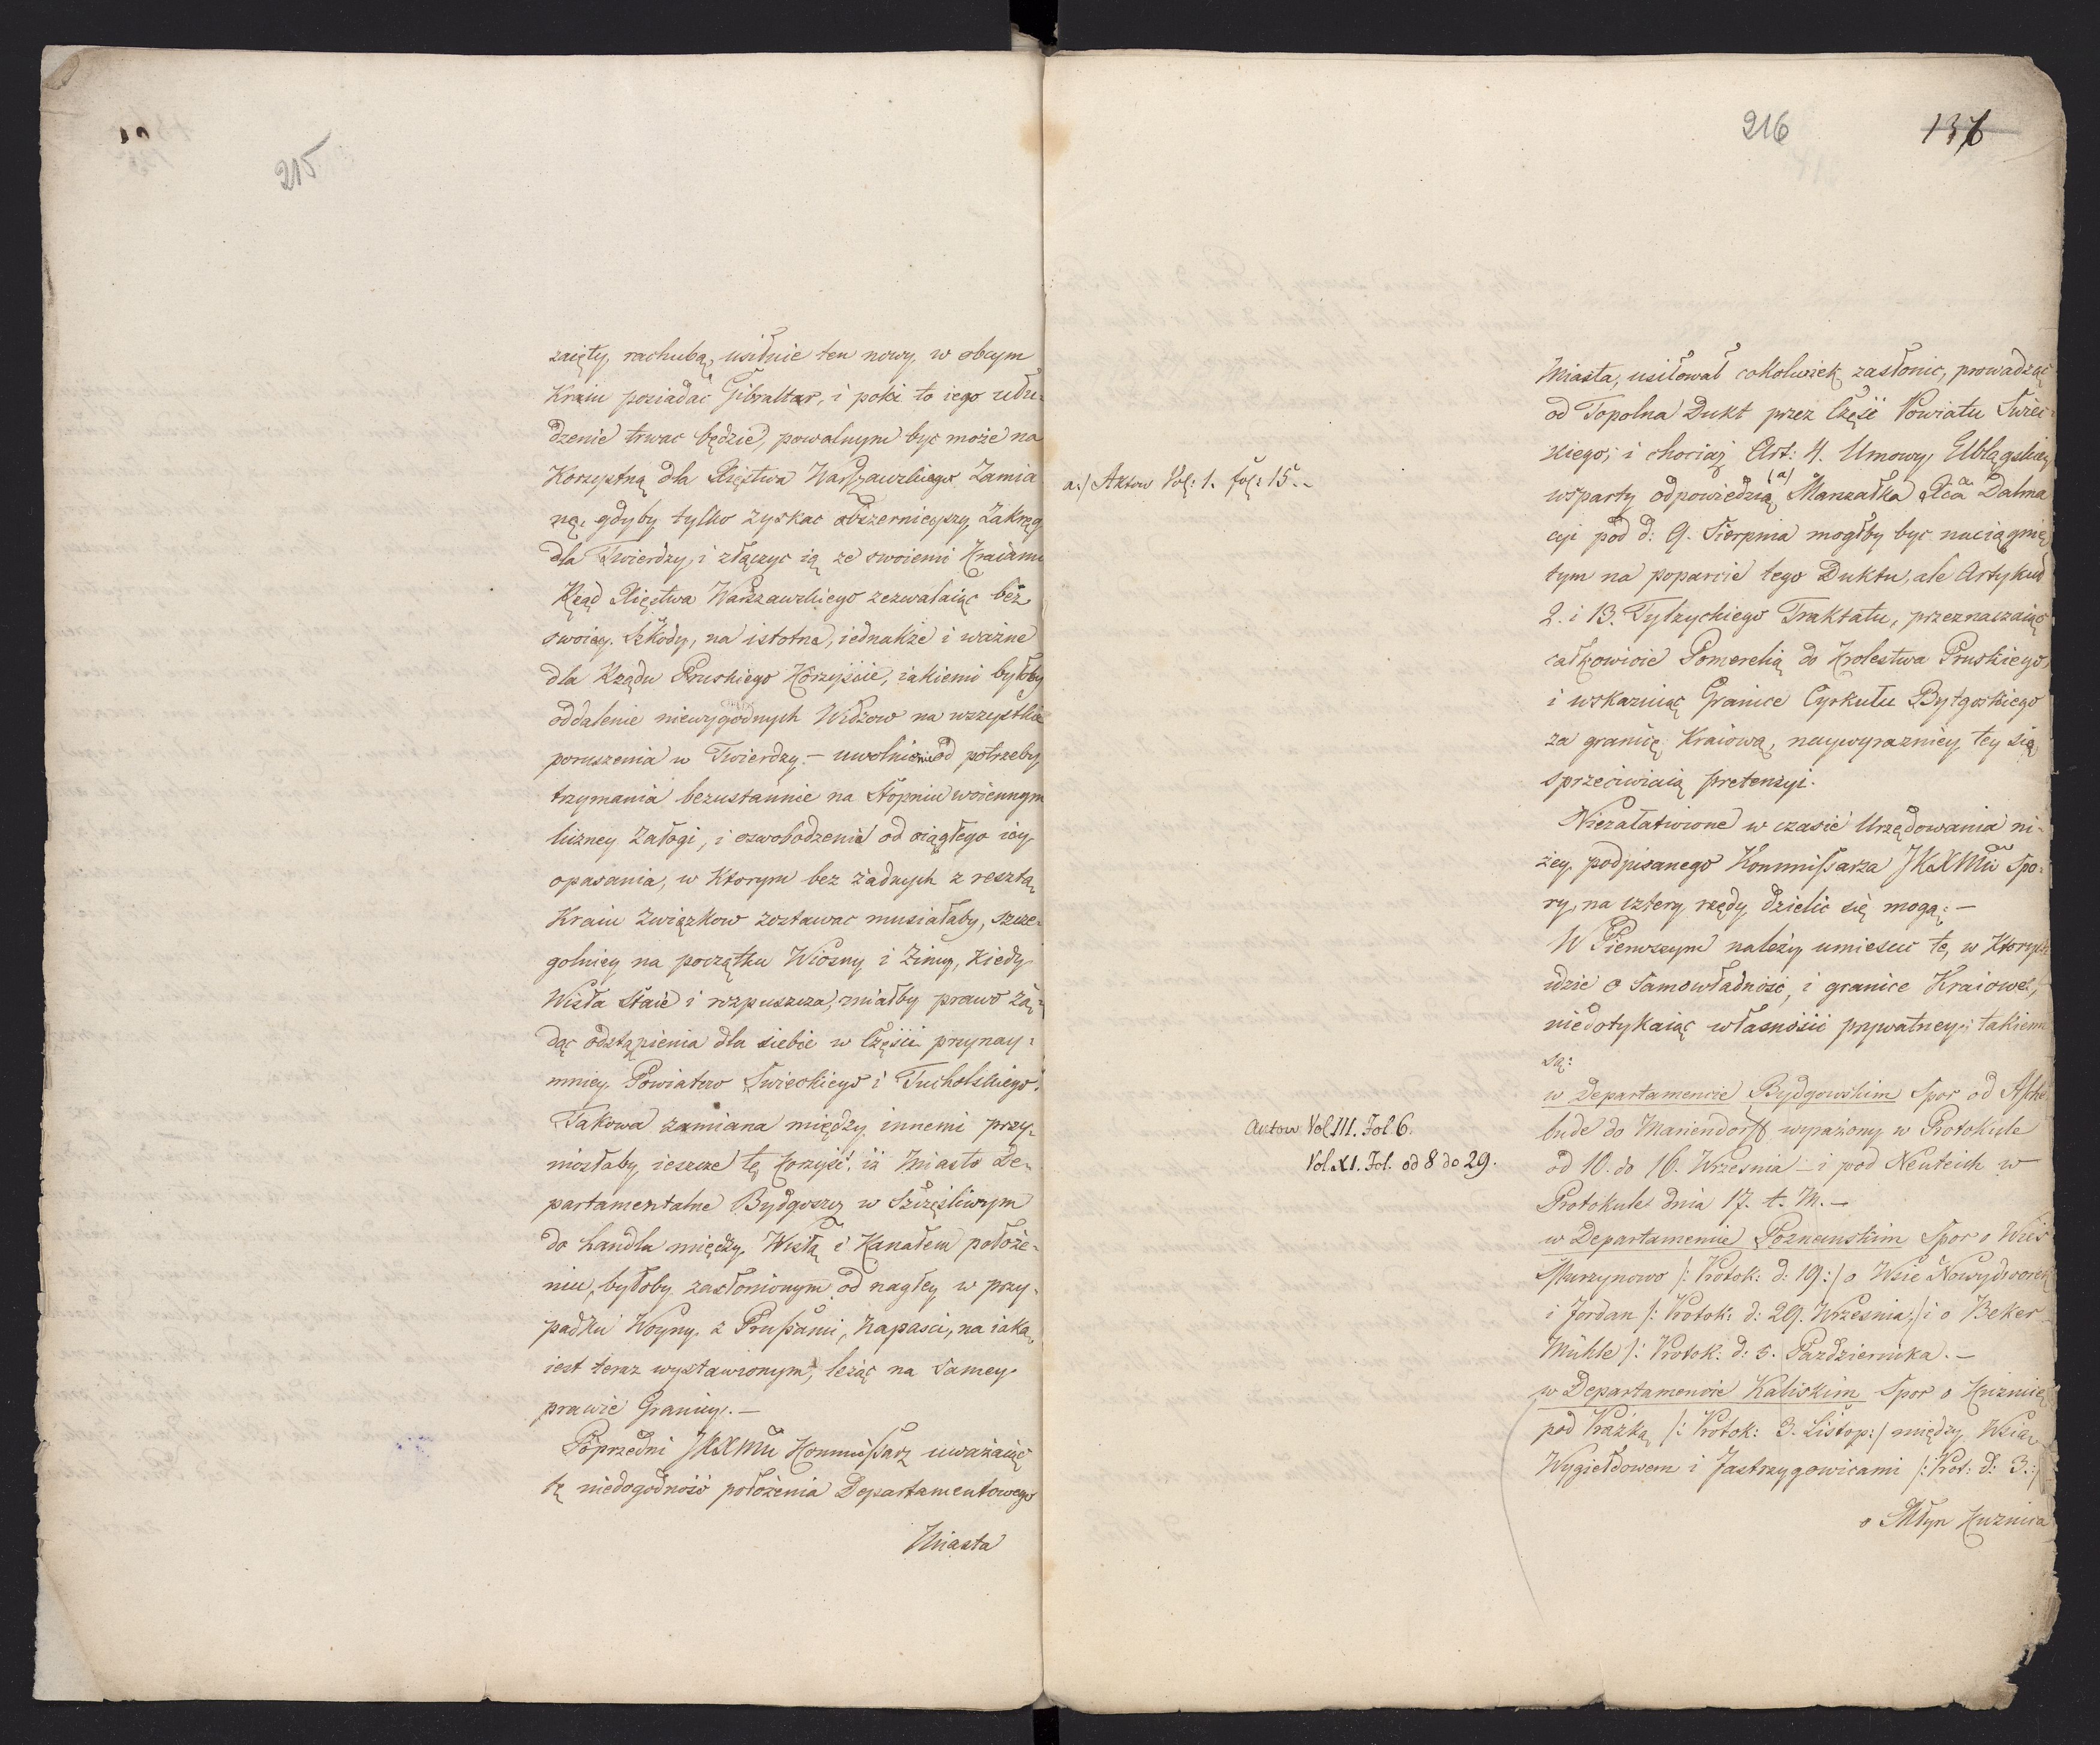 215
zaięty rachubą, usilnie ten nowy w obcym
Kraiu posiadać Gibraltar, i poki to iego ułu-
dzenie trwac będzie, powolnym byc może na
Korzystną dla Xięstwa Warszawskiego Zamia
nę, gdyby tylko zyskac obszernieyszy Zakręg
dla Twierdzy, i złączyc ią ze swoiemi Kraiami
Rząd Xięstwa Warszawskiego zezwalaiąc bez
swoiey Szkody, na istotne, iednakże i ważne
dla Rządu Pruskiego Korzyście, iakiemi byłoby
oddalenie niewygodnych Widzow na wszystkie
poruszenia w Twierdzy – uwolnienie od potrzeby
trzymania bezustannie na Stopniu woiennym
liczney Załogi, i oswobodzenie od ciągłego iey
opasania, w Ktorym bez żadnych z resztą
Kraiu związkow zostawac musiałaby, szcze-
golniey na początku Wiosny i Zimy, Kiedy
Wisła Staie i rozpuszcza, miałby prawo żą-
dąc odstąpienia dla siebie w Części przynay-
mniey Powiatow Swieckiego i Tucholskiego.
Takowa zamiana między innemi przy-
niosłaby ieszcze tę korzyść, iż Miasto De-
partamentalne Bydgoszcz w Szczęśliwym
do handlu między Wisłą i Kanałem położe-
niu, byłoby zasłonionym od nagłey w przy-
padku Woyny z Prussami, Napasci, na iaką
iest teraz wystawionym, leżąc na samey
prawie Granicy. –
Poprzedni JKXMci Kommissarz uważaiąc
tę niedogodność położenia Departamentowego
Miasta
216
137
Miasta, usiłował cokolwiek zasłonic, prowadząc
od Topolna Dukt przez Część Powiatu Swiec-
kiego, i chociaż Art: 4. Umowy Elblągskiey
wsparty odpowiedzią (a) Marszałka Xcia Dalma
cyi pod d: 9. Sierpnia mogłby byc naciągnię
tym na poparcie tego Duktu, ale Artykuł
2. i 13. Tylzyckiego Traktatu, przeznaczaiąc
całkowicie Pomerelią do Krolestwa Pruskiego,
i wskazuiąc Granice Cyrkułu Bydgoskiego
za granicę Kraiową, naywyrazniey tey się
sprzeciwiaią pretensyi.
a.) Aktow Vol: 1. fol: 15.
Niezałatwione w czasie Urzędowania ni-
żey podpisanego Kommissarza JKXMci Spo-
ry, na cztery rzędy dzielić się mogą: –
W Pierwszym należy umiescic te, w Ktorych
idzie o Samowładność, i granice Kraiowe,
niedotykaiąc własności prywatney; takiemi
są:
w Departamencie Bydgowskim Spor od Asche
bude do Mariendorff wyrażony w Protokule
od 10. do 16. Wrzesnia – i pod Neuteich w
Protokule dnia 17. t. M. –
Aktow Vol III. Fol 6.
Vol. XI. Fol. od 8 do 29.
w Departamencie Poznanskim Spor o Wieś
Murzynowo /: Protok: d: 19 :/ o Wsie Nowydworek
i Jordan /: Protok: d: 29. Wrzesnia :/ i o Beker
Mühle /: Protok: d: 5. Pazdziernika. –
w Departamencie Kaliskim Spor o Kuznicę
pod Praźką /: Protok: 3. Listop: / między Wsią
Wygiełdowem i Jastrzygowicami /: Prot: d: 3. :/
o Młyn Kuznica